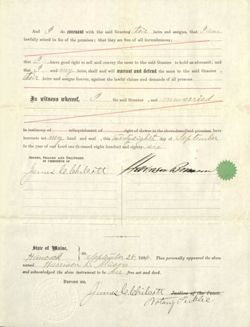 And I do covenant with the said Grantee, heirs and assigns, that I am
lawfully seized in fee of the premises; that they are free of all incumbrances;
that I have good right to sell and convey the same to the said Grantee to hold as aforesaid; and
that I and my heirs, shall and will warrant and defend the same to the said Grantee,
heirs and assigns forever, against the lawful claims and demands of all persons.
In witness whereof, I the said Grantor, and unmarried
in testimony of relinquishment of right of dower in the above described premises, have
hereunto set my hand and seal, this twenty-eighth day of September
in the year of our Lord one thousand eight hundred and eighty
SIGNED, SEALED AND DELIVERED
IN PRESENCE OF
State of Maine,
Hancock ss. September 28 Personally appeared the above
named Harrison
and acknowledged the above instrument to be his free act and deed.
BEFORE ME,
Justice of the Peace.
Notary Public